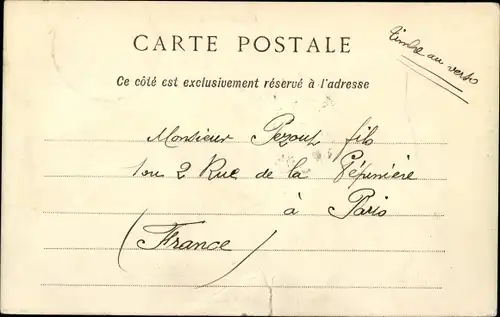 CARTE POSTALE
timbre au verso
Ce côté est exclusivement réservé à l'adresse
Monsieur fils
2 Rue de la Pépinière
à Paris
(France)